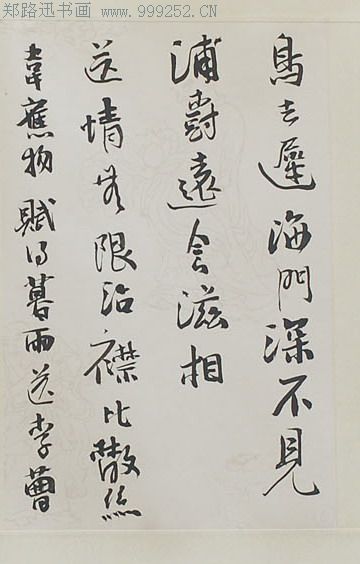 郑路迅书画 www.999252.CN
鳥去遲海門深不見
浦樹遠含滋相
送情無限沾襟比散絲
韋應物賦得暮雨送李曹